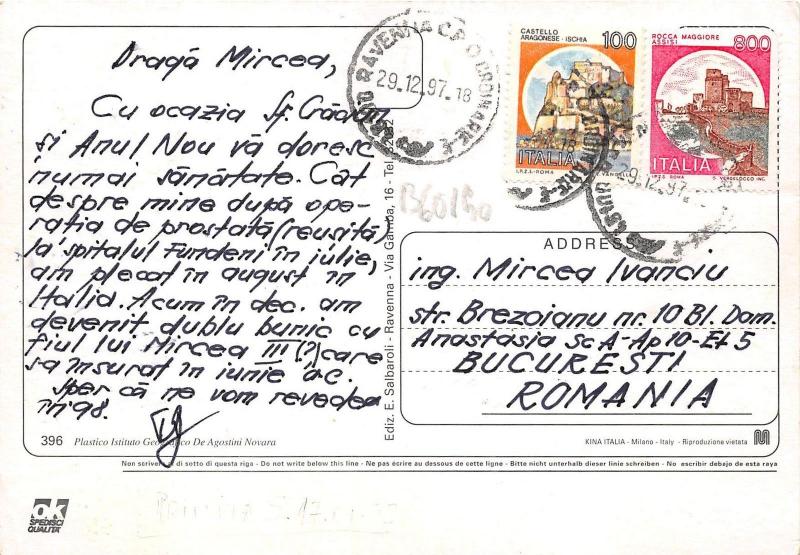 Dragă Mircea,
Cu ocazia Sf. Crăciun
și Anul Nou vă doresc
numai sănătate. Cat
despre mine după ope-
rația de prostată (reusită)
la spitalul Fundeni în iulie,
am plecat în august in
Italia. Acum în dec. am
devenit dublu bunic cu
fiul lui Mircea III (?) care
s-a însurat în iunie a.c.
Sper că ne vom revedea
în 98.
396 Plastico Istituto Geografico De Agostini Novara
Ediz. E. Salbaroli - Ravenna - Via Gamba, 16 - Tel.
RAVENNA C.P. ORDINARIE
29.12.97.18
CASTELLO
ARAGONESE - ISCHIA
100
ITALIA
I.P.Z.S. - ROMA
ROCCA MAGGIORE
ASSISI
800
ITALIA
I.P.Z.S. ROMA
29.12.97
B60/90
ADDRESS
ing. Mircea Ivanciu
str. Brezoianu nr. 10 Bl. Dam.
Anastasia Sc A - Ap 10 - Et 5
BUCURESTI
ROMANIA
KINA ITALIA - Milano - Italy - Riproduzione vietata
Non scrivere al di sotto di questa riga - Do not write below this line - Ne pas écrire au dessous de cette ligne - Bitte nicht unterhalb dieser linie schreiben - No escribir debajo de esta raya
ok
SPEDISCI
QUALITÀ